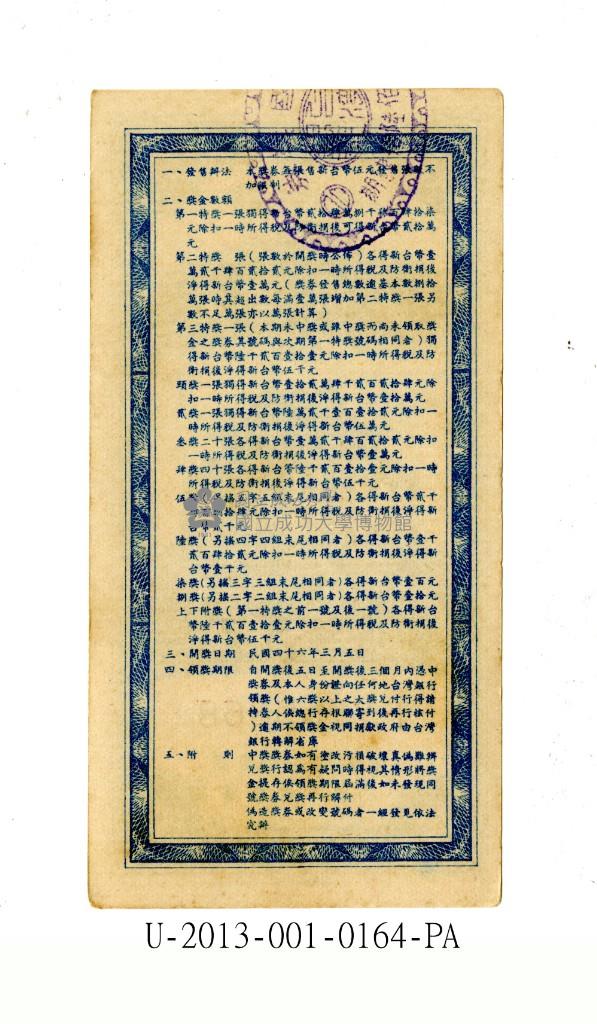 一、發售辦法 本獎券每張售新台幣伍元發售張數不
加限制
二、獎金數額
第一特獎一張獨得新台幣貳拾萬捌千 柒
元除扣一時所得稅及防衛捐後可得新台幣貳拾萬
元
第二特獎 張(張數於開獎時公佈)各得新台幣壹
萬貳千肆百貳拾貳元除扣一時所得稅及防衛捐後
淨得新台幣壹萬元(獎券發售總數逾基本數捌拾
萬張時其超出數每滿壹萬張增加第二特獎一張另
數不足萬張亦以萬張計算)
第三特獎一張(本期未中獎或雖中獎而尚未領取獎
金之獎券其號碼與次期第一特獎號碼相同者)獨
得新台幣陸千貳百壹拾壹元除扣一時所得稅及防
衛捐後淨得新台幣伍千元
頭獎一張獨得新台幣壹拾貳萬肆千貳百貳拾肆元除
扣一時所得稅及防衛捐後淨得新台幣壹拾萬元
貳獎一張獨得新台幣陸萬貳千壹百壹拾貳元除扣一
時所得稅及防衛捐後淨得新台幣伍萬元
叁獎二十張各得新台幣壹萬貳千肆百貳拾貳元除扣
一時所得稅及防衛捐後淨得新台幣壹萬元
肆獎四十張各得新台幣陸千貳百壹拾壹元除扣一時
所得稅及防衛捐後淨得新台幣伍千元
伍獎(另搖五字五組末尾相同者)各得新台幣貳千
肆元除扣一時所得稅及防衛捐後淨得新
台幣貳千元
國立成功大學博物館
陸獎(另搖四字四組末尾相同者)各得新台幣壹千
貳百肆拾貳元除扣一時所得稅及防衛捐後淨得新
台幣壹千元
柒獎(另搖三字三組末尾相同者)各得新台幣壹百元
捌獎(另搖二字二組末尾相同者)各得新台幣壹拾元
上下附獎(第一特獎之前一號及後一號)各得新台
幣陸千貳百壹拾壹元除扣一時所得稅及防衛捐後
淨得新台幣伍千元
三、開獎日期 民國四十六年三月五日
四、領獎期限 自開獎後五日至開獎後三個月內憑中
獎券及本人身份證向任何地台灣銀行
領獎(惟六獎以上之大獎兌付行得請
持券人俟總行存根聯寄到後再行核付
)逾期不領獎金視同捐獻政府由台灣
銀行轉解省庫
五、附 則 中獎獎券如有塗改污損破壞真偽難辨
兌獎行認為有疑問時得視其情形將獎
金提存俟領獎期限屆滿後如未發現同
號獎券兌獎再行解付
偽造獎券或改變號碼者一經發見依法
究辦
U-2013-001-0164-PA